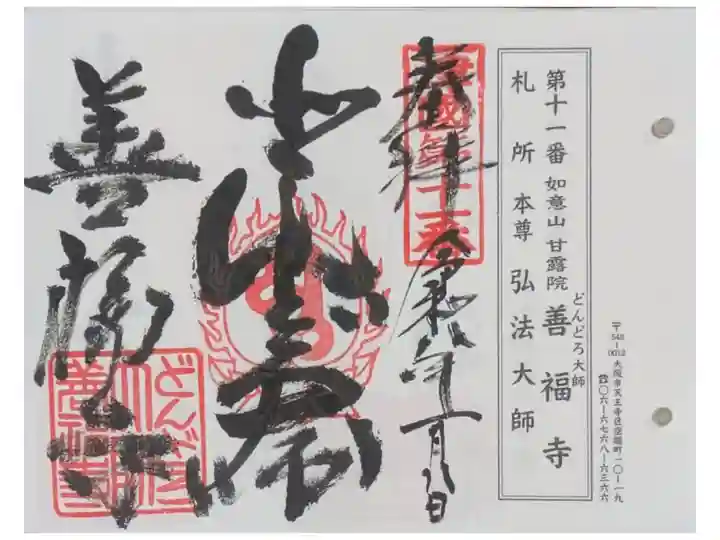 〒543-0012 大阪市天王寺区空堀町一〇ー一九
☎〇六ー六七六八ー六三六六
どんどろ大師
第十一番 如意山 甘露院 善福寺
札所 本尊 弘法大師
奉拝 令和八年一月八日
國第十一番
善福寺
どんどろ
大師
善福寺